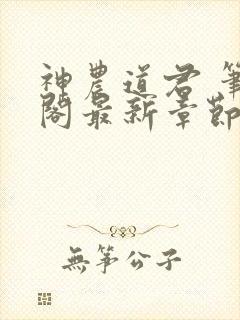 神農道君 筆
閣最新章節
無箏公子